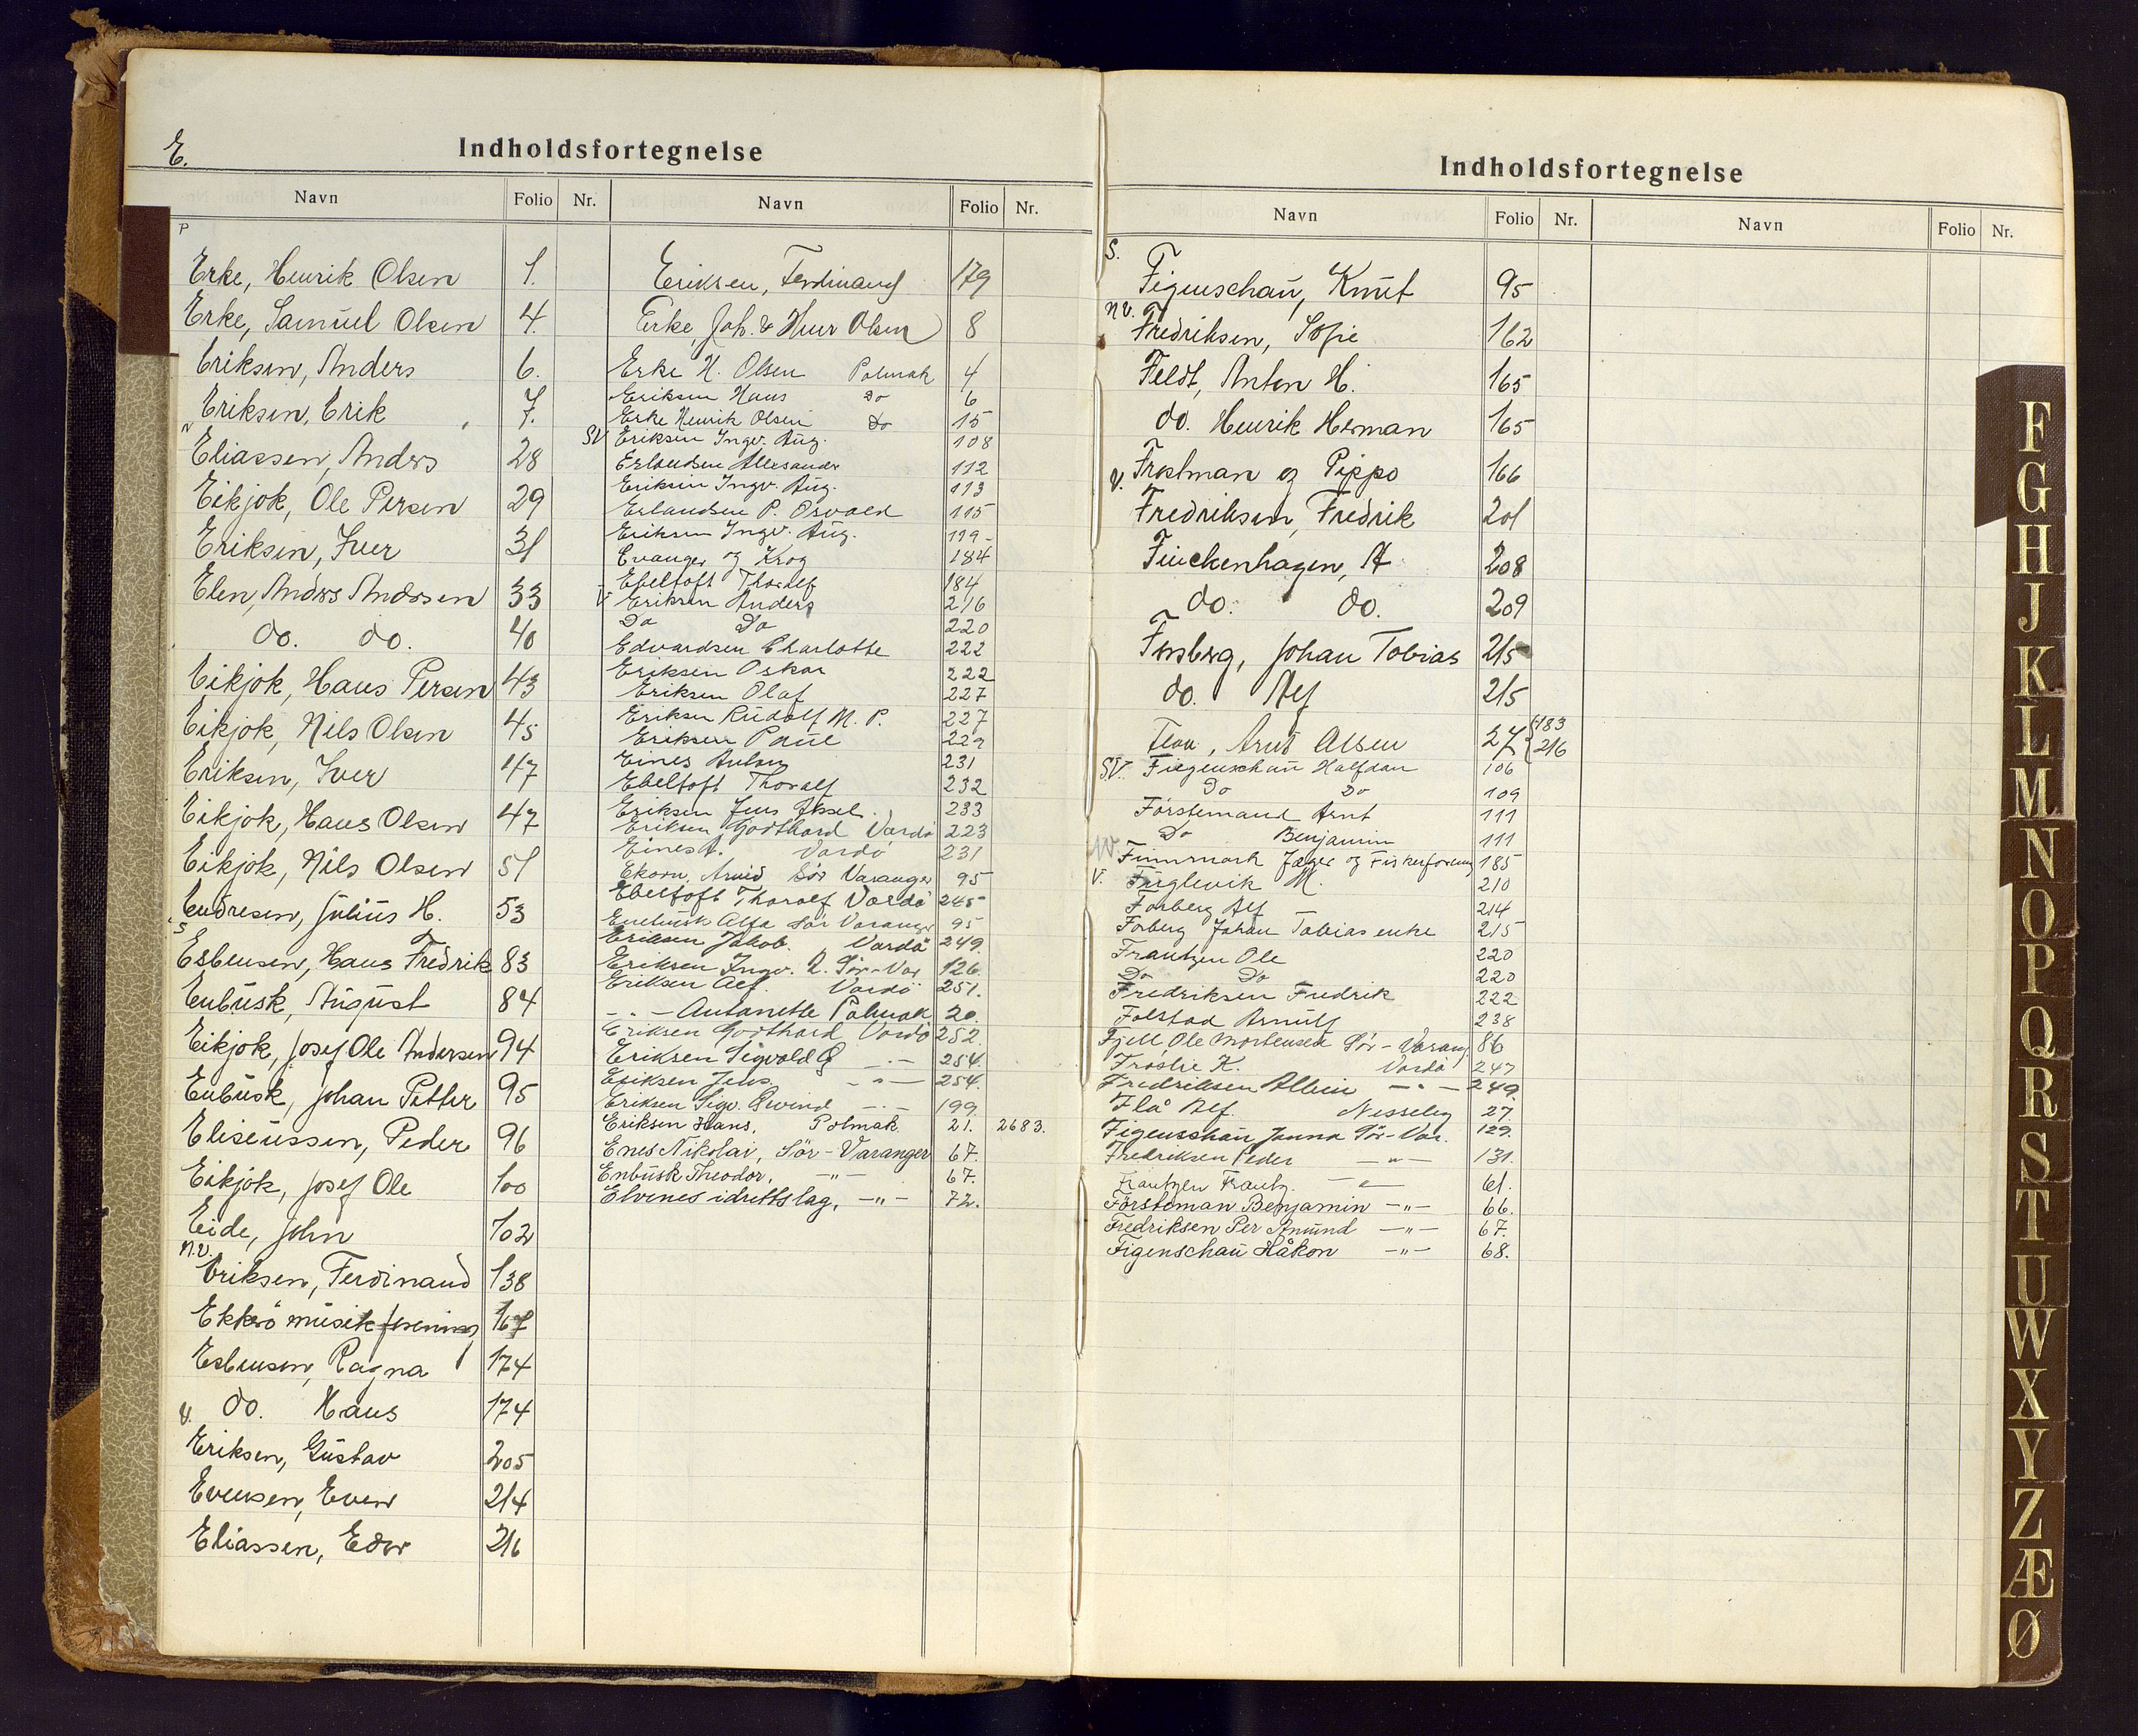 E.
Indholdsfortegnelse
Navn Folio Nr. Navn Folio Nr.
P
Erke, Henrik Olsen 1.
Erke, Samuel Olsen 4.
Eriksen, Anders 6.
Eriksen, Erik 7.
N
Eliassen, Anders 28
Eikjok, Ole Persen 29
Eriksen, Iver 31
Elen, Anders Andersen 33
do. do. 40
Eikjok, Hans Persen 43
Eikjok, Nils Olsen 45
Eriksen, Iver 47
Eikjok, Hans Olsen 47
Eikjok, Nils Olsen 51
Endresen, Julius H. 53
S
Esbensen, Hans Fredrik 83
Enbusk, August 84
Eikjok, Josef Ole Andersen 94
Enbusk, Johan Petter 95
Eliseussen, Peder 96
Eikjok, Josef Ole 100
Eide, John 102
N.V.
Eriksen, Ferdinand 138
Ekkerö musikforening 167
Esbensen, Ragna 174
do. Hans 174
V.
Eriksen, Gustav 205
Evensen, Even 214
Eliassen, Edor 216
Eriksen, Ferdinand 179
Erke, Joh. & Henr Olsen 8
Erke H. Olsen Polmak 4
Eriksen Hans Do 6
Erke Henrik Olsen Do 15
SV Eriksen Ingv. Aug. 108
Erlandsen Alleksander 112
Eriksen Ingv. Aug. 113
Erlandsen P. Osvald 115
Eriksen Ingv. Aug. 119
Evanger og Krog 184
Ebeltoft Thoralf 184
V Eriksen Anders 216
Do Do 220
Edvardsen Charlotte 222
Eriksen Oskar 222
Eriksen Olaf 227
Eriksen Rudolf M. P. 227
Eriksen Paul 229
Eines Anton 231
Ebeltoft Thoralf 232
Eriksen Jens Aksel. 233
Eriksen Godthard Vardö 223
Eines A. Vardö 231
Ekorn, Arvid Sör Varanger 95
Ebeltoft Thoralf Vardö 245
Enebusk Alfa Sör Varanger 95
Eriksen Jakob. Vardö 249.
Eriksen Ingv. A. Sör-Var 126.
Eriksen Alf. Vardö 251.
- " - Antonette Polmak 20.
Eriksen Godthard Vardö 252.
Eriksen Sigvald G - " - 254.
Eriksen Jens. - " - 254.
Eriksen Sigv. Öivind - " - 199.
Eriksen Hans, Polmak. 21. 2683.
Enes Nikolai, Sör-Varanger 67.
Enbusk Theodor, - " - 67.
Elvenes idrettslag, - " - 72.
Indholdsfortegnelse
Navn Folio Nr. Navn Folio Nr.
S.
Figenschau, Knut 95
N.V.
Fredriksen, Sofie 162
Feldt, Anton H. 165
do. Henrik Herman 165
V. Frostman og Pippo 166
Fredriksen, Fredrik 201
Finckenhagen, A 208
do. do. 209
Forsberg, Johan Tobias 215
do. Alf 215
Flaa, Arnt Olsen 27 {183
216
SV. Fiegenschau Halfdan 106
Do Do 109
Förstemand Arnt 111
Do Benjamin 111
NV. Finnmark Jæger og Fiskerforening 185
V. Fuglevik M. 210
Forberg Alf 214
Forberg Johan Tobias enke 215
Frantzen Ole 220
Do Do 220
Fredriksen Fredrik 222
Folstad Arnulf 238
Fjell Ole Mortensen Sör-Varang. 86
Froslie K. Vardö 247
Fredriksen Albin - " - 249.
Flå Alf. Nesseby 27.
Figenschau Janna Sör-Var. 129.
Fredriksen Peder - " - 131.
Frantzen Frantz. - " - 61.
Försteman Benjamin - " - 66.
Fredriksen Per Amund - " - 67.
Figenschau Håkon - " - 68.
F
G
H
J
K
L
M
N
O
P
Q
R
S
T
U
W
X
Y
Z
Æ
Ø